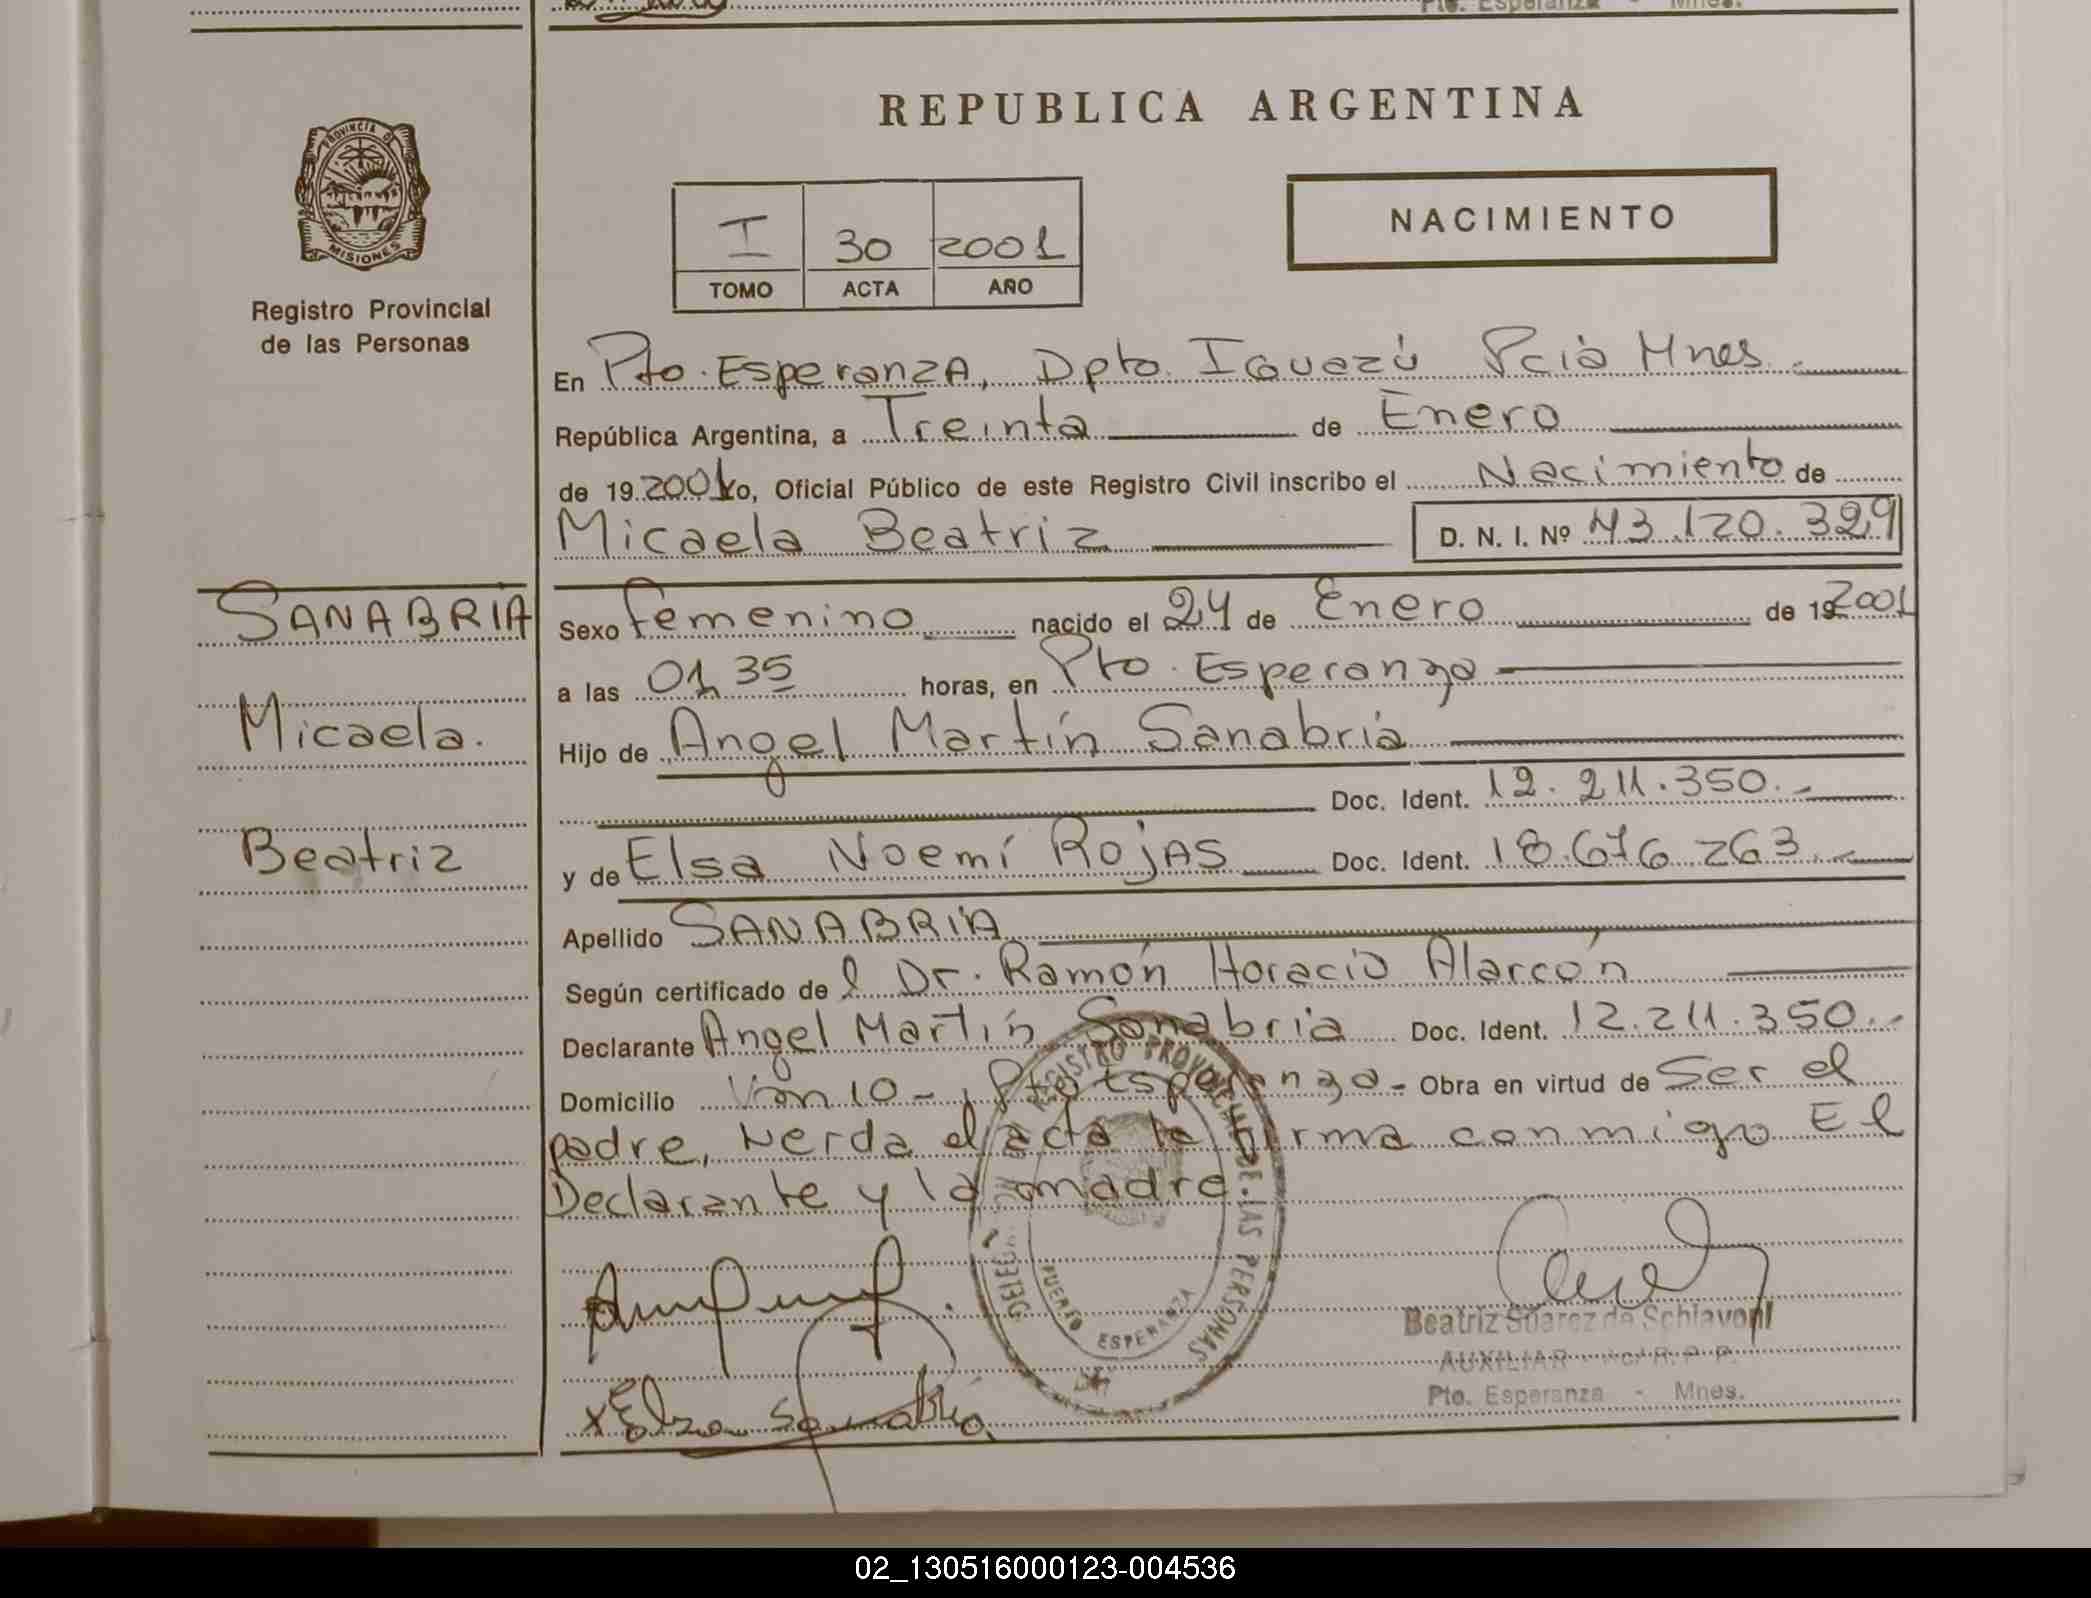 Pto. Esperanza - Mnes.
PROVINCIA DE
MISIONES
Registro Provincial
de las Personas
REPUBLICA ARGENTINA
I 30 2001
TOMO ACTA AÑO
NACIMIENTO
En Pto. Esperanza, Dpto. Iguazú Pcia Mnes.-
República Argentina, a Treinta de Enero
de 19 2001 Yo, Oficial Público de este Registro Civil inscribo el Nacimiento de
Micaela Beatriz D. N. I. Nº 43.120.329
SANABRIA
Micaela.
Beatriz
Sexo Femenino nacido el 24 de Enero de 19 2001
a las 01 35 horas, en Pto. Esperanza
Hijo de Angel Martín Sanabria
Doc. Ident. 12.211.350.-
y de Elsa Noemí Rojas Doc. Ident. 18.676.263.-
Apellido SANABRIA
Según certificado de l Dr. Ramón Horacio Alarcón
Declarante Angel Martín Sanabria Doc. Ident. 12.211.350.-
Domicilio Km 10 - Pto Esperanza.- Obra en virtud de Ser el
padre, el acta la firma conmigo El
Declarante y la madre.
REGISTRO PROVINCIAL DE LAS PERSONAS
PUERTO ESPERANZA
x Elsa Sanabria
Beatriz Suarez de Schiavoni
AUXILIAR R. P. P.
Pto. Esperanza - Mnes.
02_130516000123-004536